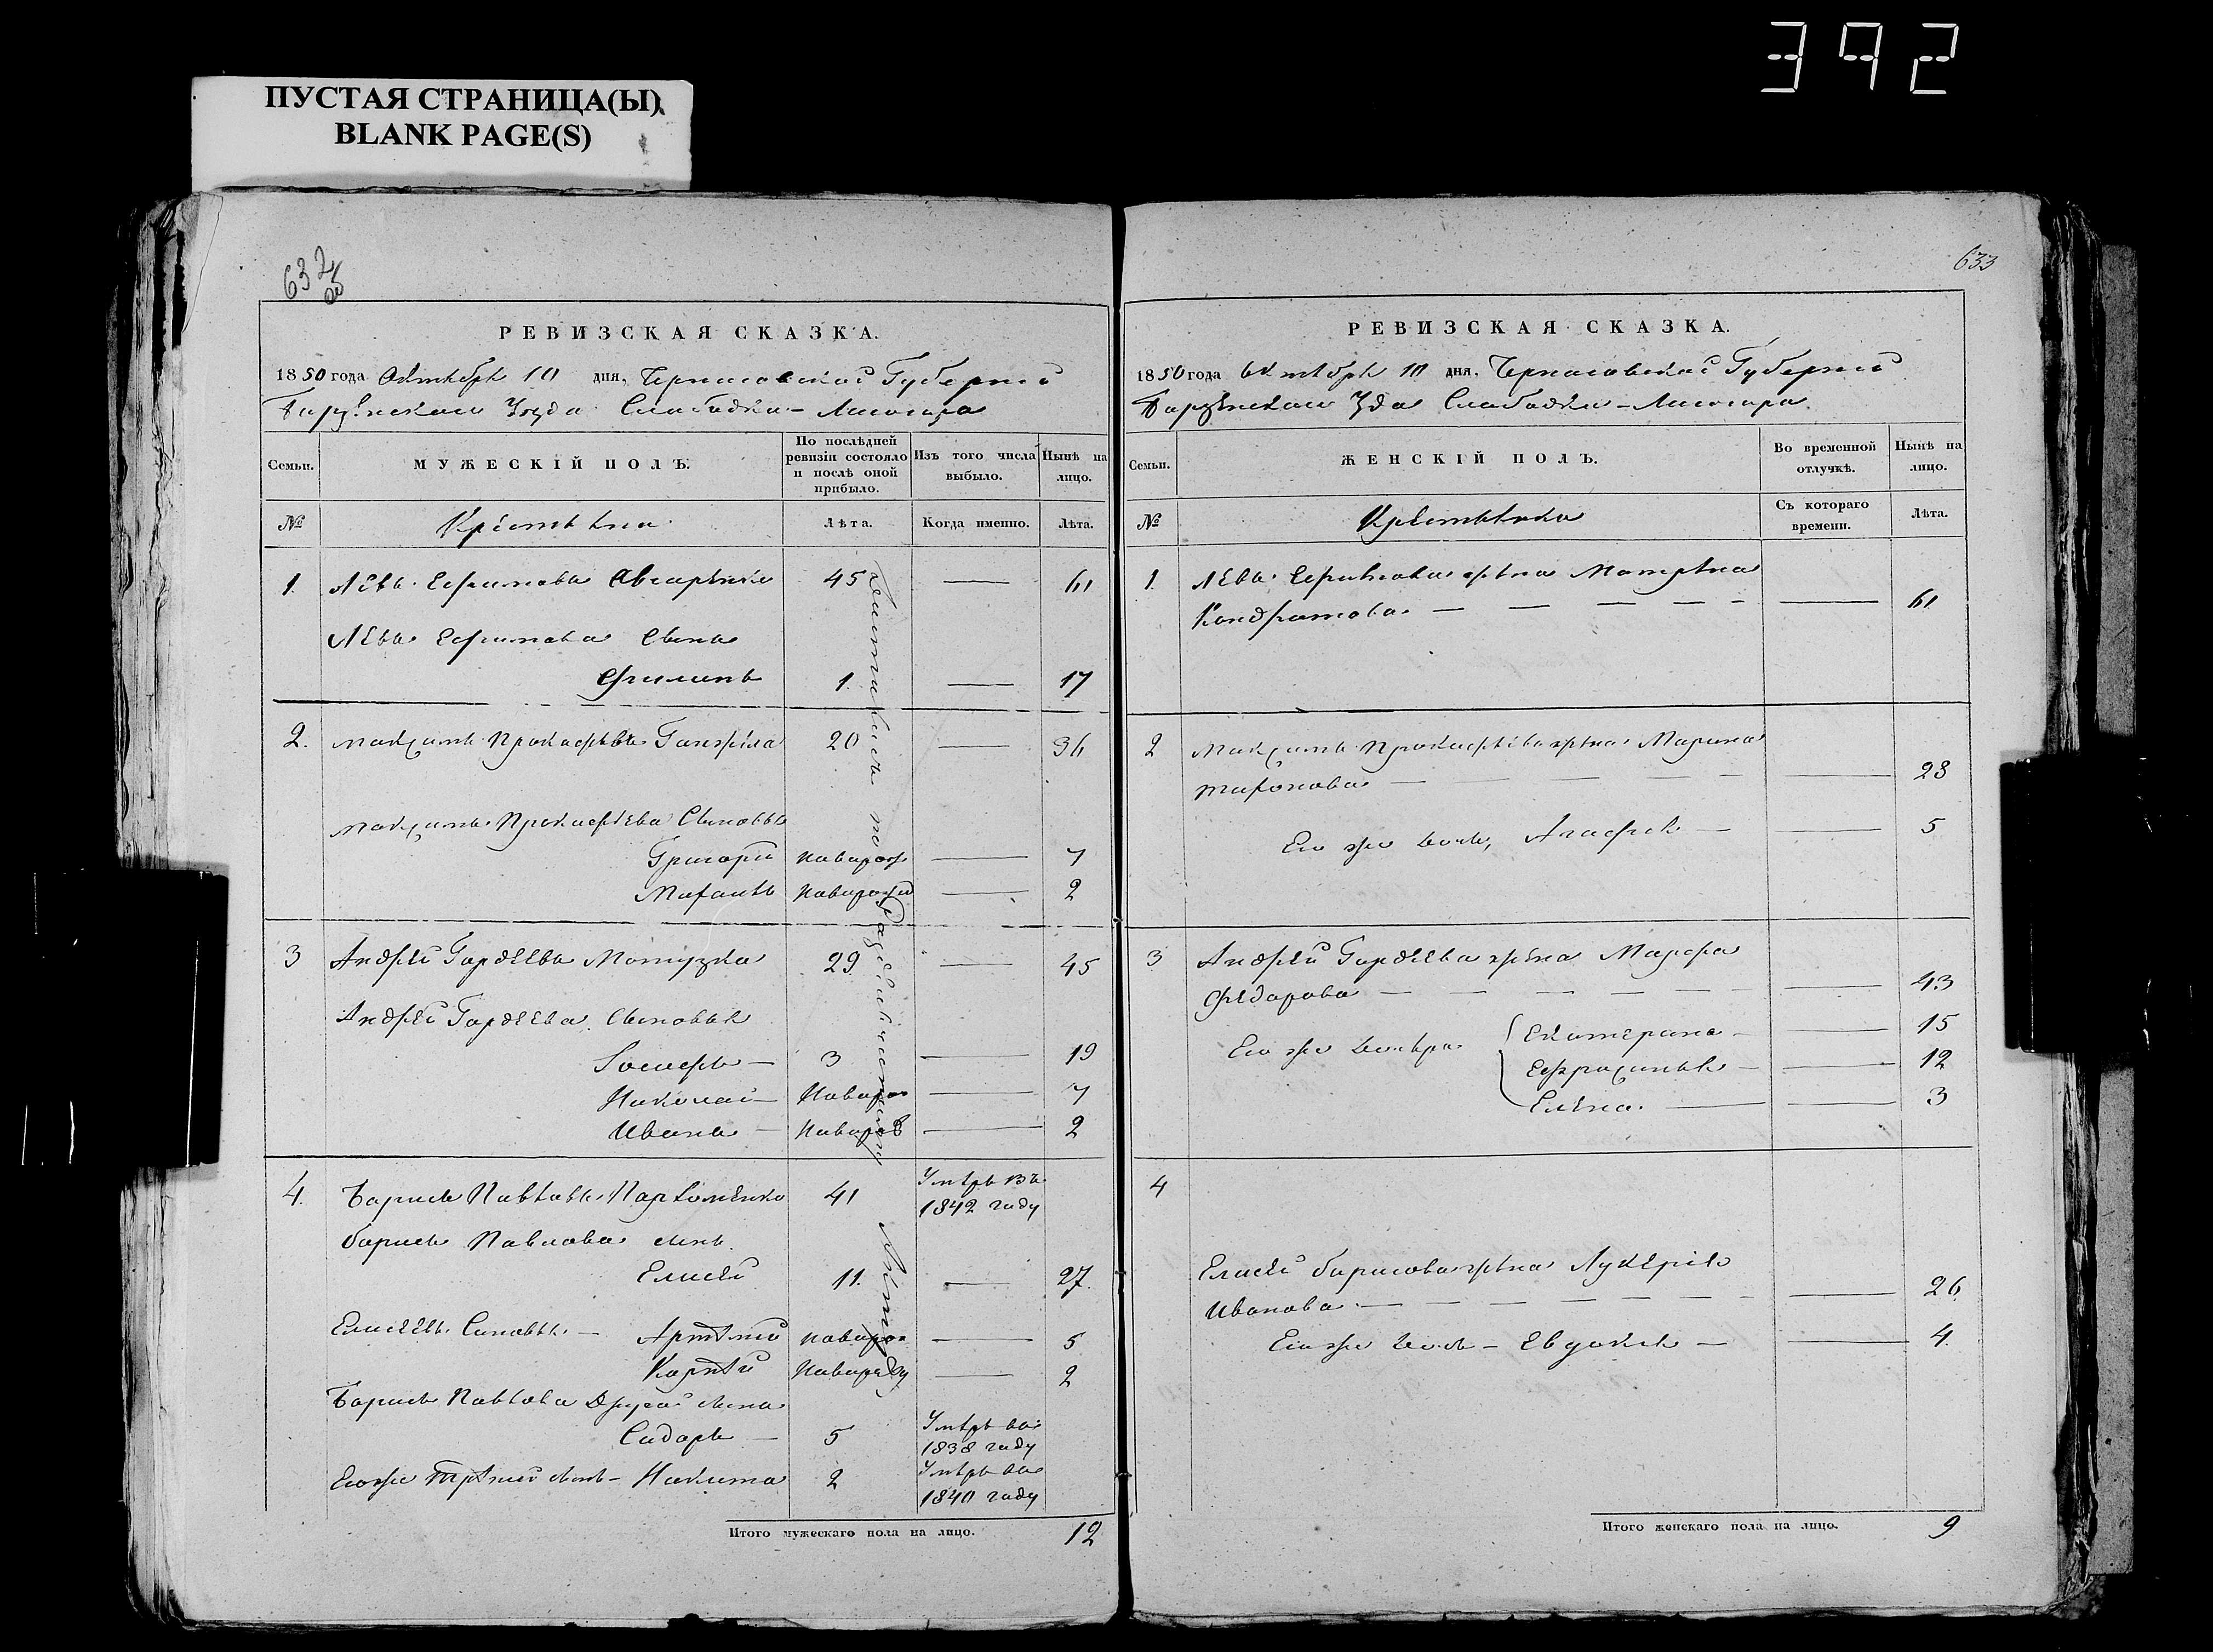 392
ПУСТАЯ СТРАНИЦА(Ы)
BLANK PAGE(S)
632
об
РЕВИЗСКАЯ СКАЗКА.
1850 года Октября 10 дня, Черниговской Губернии
Борзенскаго Уезда Слабодки-
Семьи.
МУЖЕСКІЙ ПОЛЪ.
По послѣдней ревизіи состояло и послѣ оной прибыло.
Изъ того числа выбыло.
Нынѣ на лицо.
№
Крестьяне
Лѣта.
Когда именно.
Лѣта.
1. Левъ Ефимовъ 45 — 61
Лева Ефимова сынъ
Филипъ 1. — 17
2. Максимъ Прокофьевъ 20 — 36
Максима Прокофьева Сыновья
Григорий новорож — 7
новорожд — 2
3 Андрей Гордеевъ Мотузка 29 — 45
Андрея Гордеева Сыновья
Іосифъ — 3 — 19
Николай — Новорож — 7
Иванъ — Новорож — 2
4. Борисъ Павловъ Пархоменко 41 Умеръ въ
1842 году
Бориса Павлова сынъ
Елисей 11. — 27.
Елисеевы Сыновья — Артемий новорож — 5
Карпъ — 2
Бориса Павлова Другой сынъ
Сидоръ — 5 Умеръ въ
1838 году
Его же третий сынъ — Никита 2 Умеръ въ
1840 году
Итого мужескаго пола на лицо. 12
633
РЕВИЗСКАЯ СКАЗКА.
1850 года Октября 10 дня, Черниговской Губернии
Борзенскаго Уезда Слабодки-
Семьи.
ЖЕНСКІЙ ПОЛЪ.
Во временной отлучкѣ.
Нынѣ на лицо.
№
Крестьянки
Съ котораго времени.
Лѣта.
1. Лева Ефимова жена Матрена
Кондратова — — — — — — 61
2 Максима Прокофьева жена Марина
— — — — — 28
Его же дочь, Агафья — — 5
3 Андрея Гордеева жена Марфа
Федорова — — — — — — 43
Его же дочери Екатерина — — 15
Ефросинья — — 12
Елена. — — 3
4
Елисея Борисова жена Лукерья
Иванова — — — — — — 26.
Его же дочь — Евдокия — — 4.
Итого женскаго пола на лицо. 9